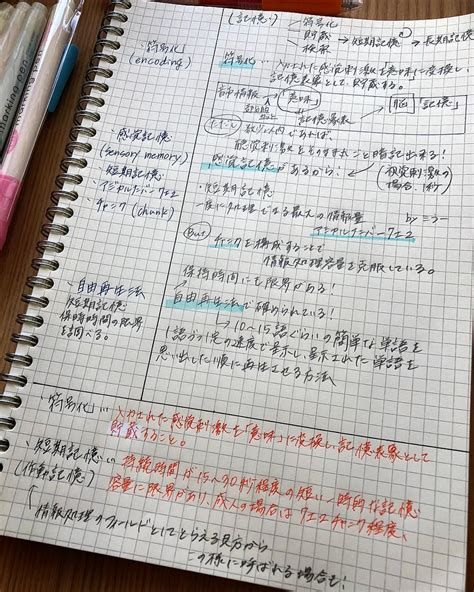 (記憶) 符号化
貯蔵 → 短期記憶 → 長期記憶
検索
・符号化
(encoding)
符号化… 入力された感覚刺激を意味に変換し、
記憶表象として貯蔵する。
「意味」
記憶表象
[脳] 「記憶」
であれば、
感覚刺激をそのまま丸ごと暗記出来る!
感覚記憶があるから。(視覚刺激の
場合1秒)
・感覚記憶
(sensory memory)
・短期記憶
・マジカルナンバー7±2
・チャンク(chunk)
・短期記憶
一度に処理できる最大の情報量 by ミラー
マジカルナンバー7±2
But チャンクを構成することで
情報処理容量を克服している。
・保持時間にも限界がある!
自由再生法で確められている!
・自由再生法
短期記憶
保持時間の限界
を調べる。
→10~15語ぐらいの簡単な単語を
1語ずつ一定の速度で呈示し、呈示された単語を
思い出した順に再生させる方法
・符号化… 入力された感覚刺激を「意味」に変換し、記憶表象として
貯蔵すること。
・短期記憶… 持続時間が15~30秒程度の短い一時的な記憶
(作動記憶) 容量に限界があり、成人の場合は7±2チャンク程度、
情報処理のフィールドとしてとらえる見方から
この様に呼ばれる場合も!